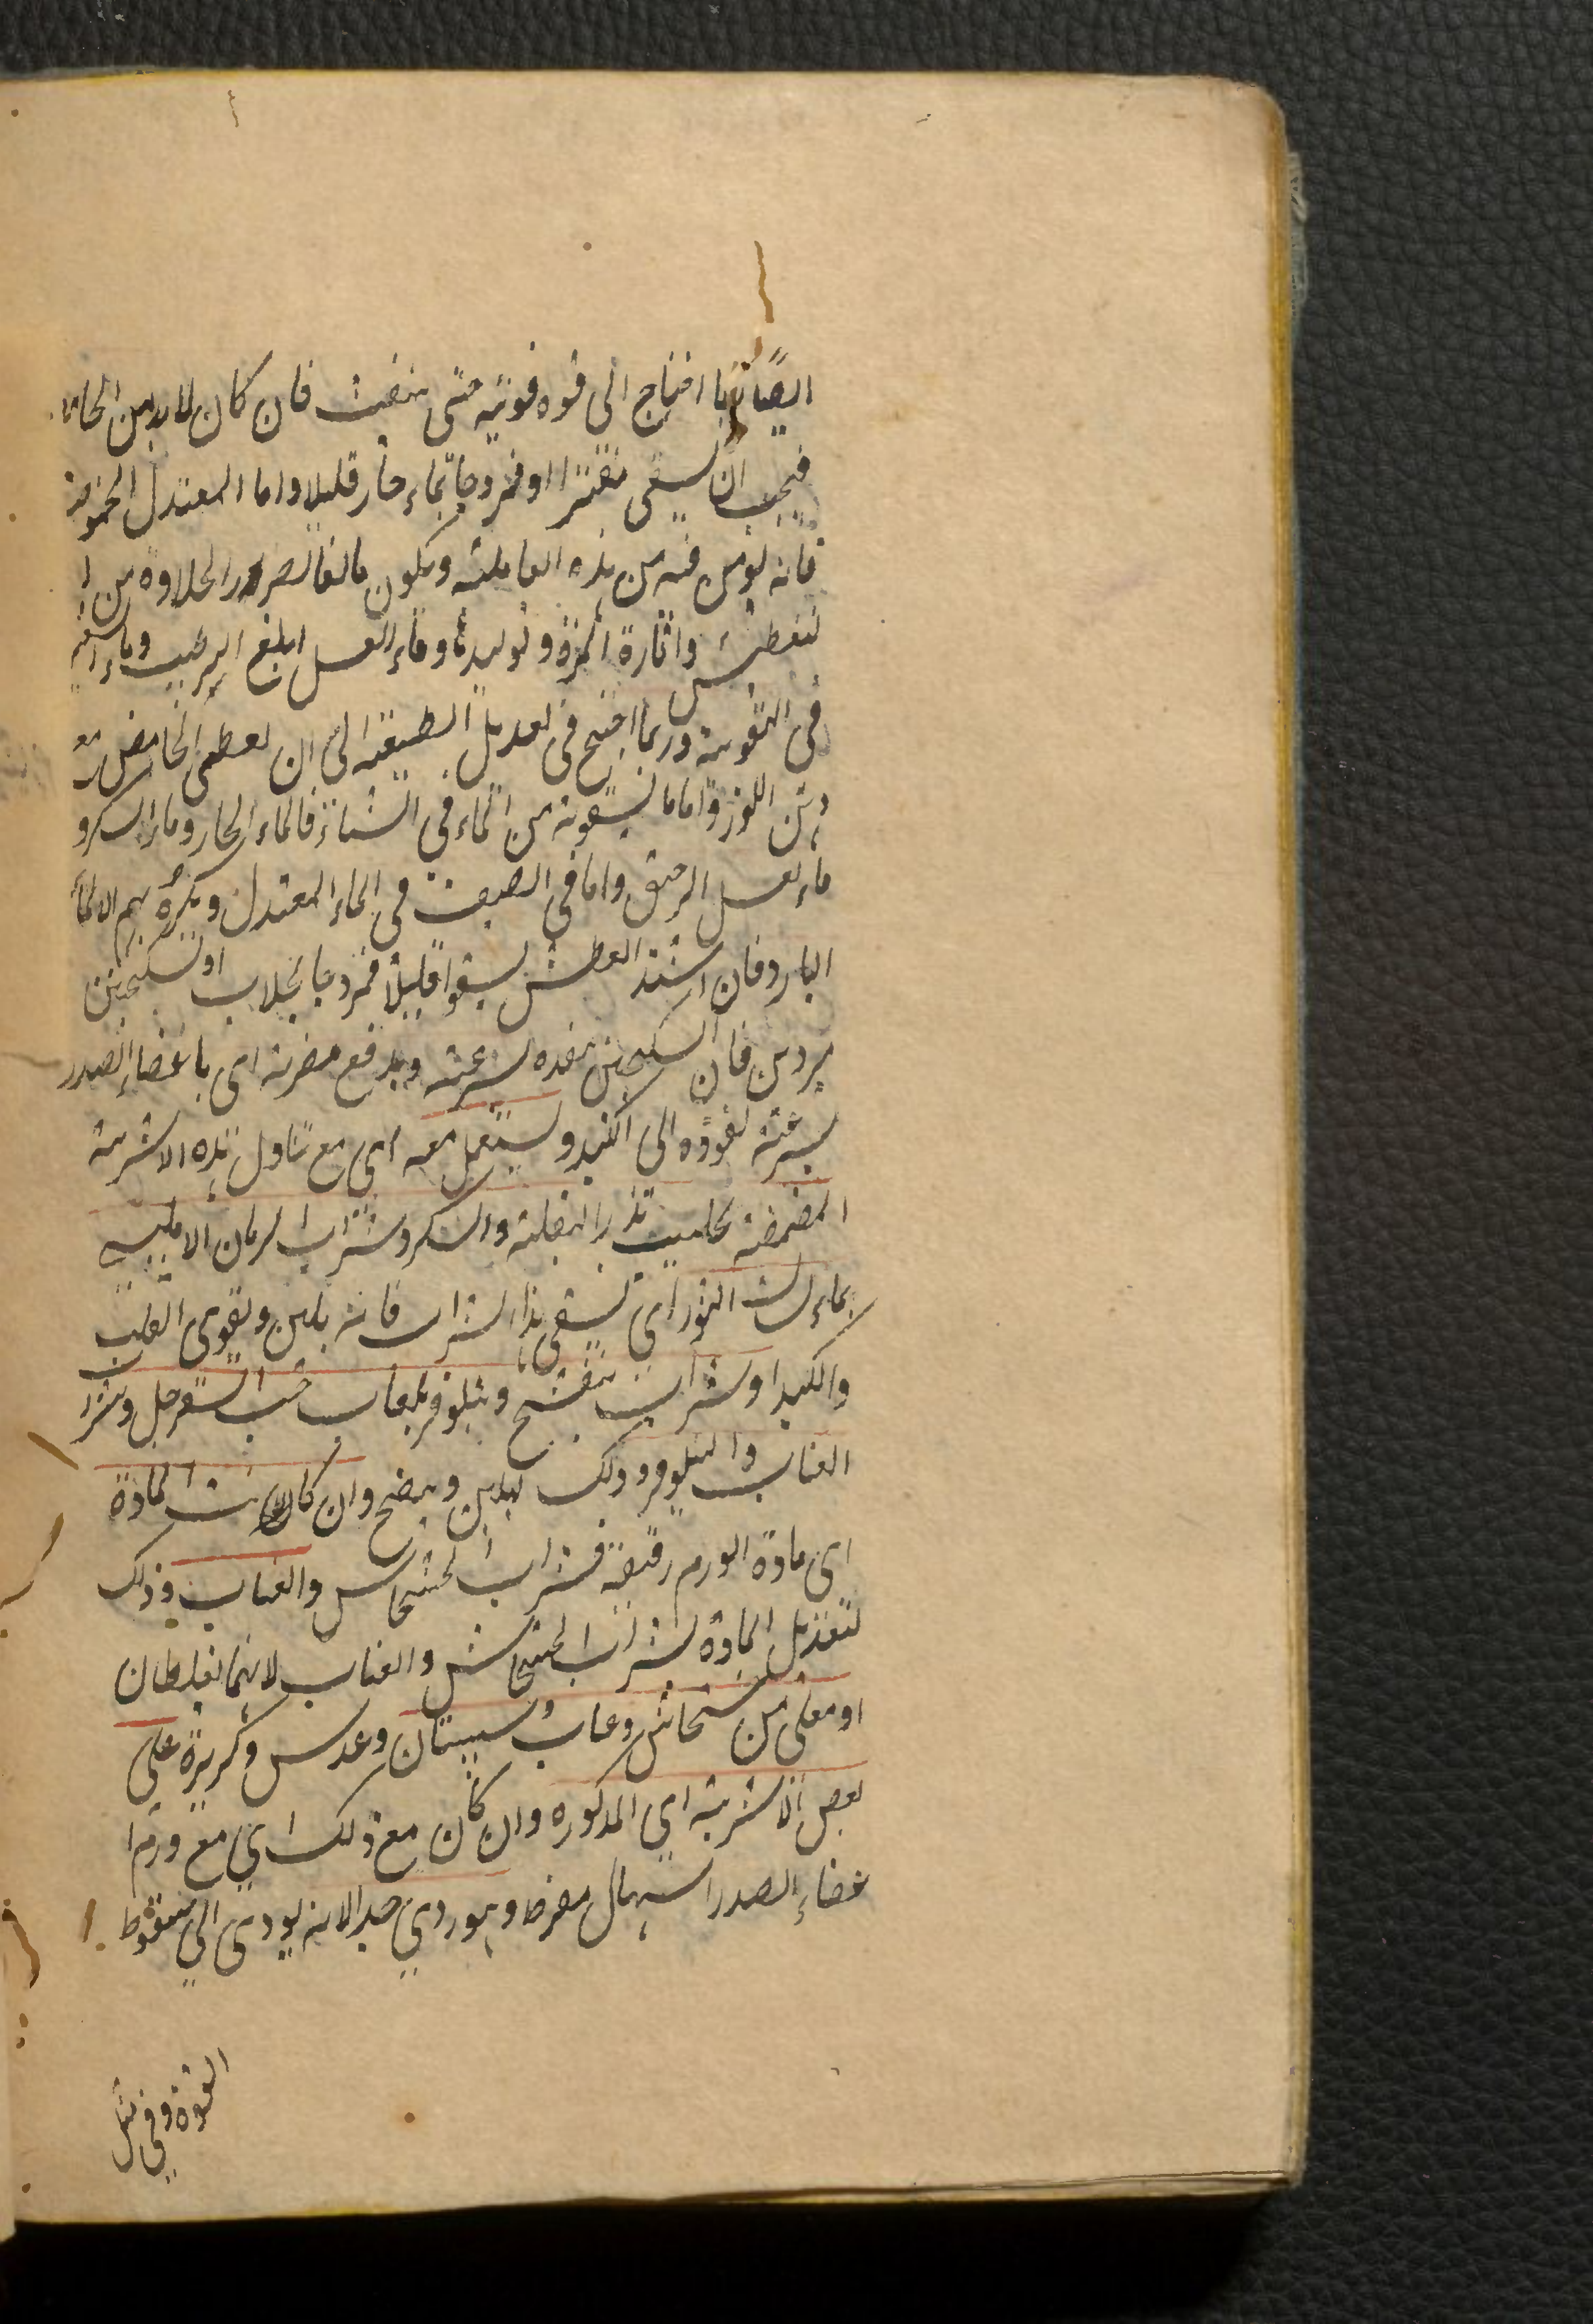 ايضا ربما احتاج الى قوه قويه حتى ينفث فان كان لا بد من الحامض
فيجب ان يسقى مفترا او ممزوجا بماء حار قليلا واما المعتدل الحموضة
فانه يؤمن فيه من هذه الغايلة ويكون مانعا لضرر الحلاوة من ا
لتعطيش واثارة المرة وتوليدها وماء العسل ابلغ الترطيب وماء
فى التقوية وربما احتيج فى تعديل الطبيعة الى ان يعطى الحامض مع
دهن اللوز واما ما يسقونه من الماء فى الشتاء فالماء الحار وماء السكر و
ماء العسل الرقيق واما فى الصيف فى الماء المعتدل ويكره لهم الماء
البارد فان اشتد العطش سقوا قليلا ممزوجا بجلاب او سكنجبين
مبردين فان السكنجبين ينفذه بسرعة ويدفع مضرته اى باعضاء الصدر
بسرعة نفوذه الى الكبد ويستعمل معه اى مع تناول هذه الاشربة
المضمضة بحليب بذر البقلة والسكر وشراب الرمان الامليسى
بماء لسان الثور اى يسقى هذا الشراب فانه يلين ويقوى القلب
والكبد او شراب بنفسج ونيلوفر بلعاب حب السفرجل وشراب
العناب والنيلوفر وذلك ليلين وينضج وان كانت المادة
اى مادة الورم رقيقة فشراب الخشخاش والعناب وذلك
لتعديل المادة بشراب الخشخاش والعناب لانهما يغلظان
او مغلى من خشخاش وعناب وسبستان وعدس وكزبرة على
بعض الاشربة اى المذكوره وان كان مع ذلك اى مع ورم ا
عضاء الصدر اسهال مفرط وهو ردي جدا لانه يودى الى سقوط
القوة وفى مثل